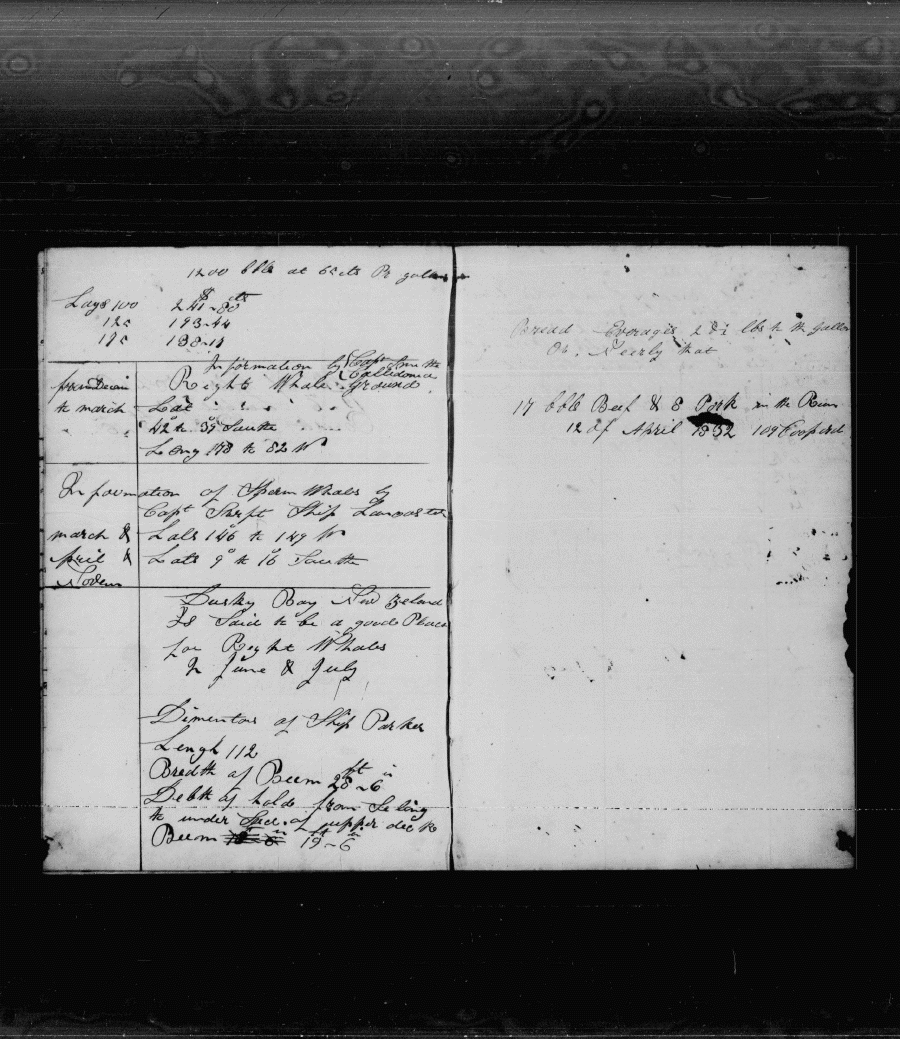 1200 bbls at 65 cts Pr gallon
$ cts
Lays 100 241-80
125 193-44
175 138-11
Information by Capt from the
Caledonia
from Decem Right Whale ground
to march Lat
42 to 39 South
Long 178 to 82 W
Information of Sperm Whales by
Capt Ship Lancaster
march & Lats 146 to 149 W
April & Lats 9° to 10° South
Novem
Dusky Bay New Zeland
Is Said to be a good Place
for Right Whales
In June & July
Dimentons of Ship Parker
Lengh 112
ft in
Bredth of Beem 28-6
Debth of holds from Seling
to under Side of upper deck
ft in
Beem 19-6
Bread Everages 2 & ½ lbs to the gallon
Or, Neerly that
17 bbls Beef & 8 Pork in the Run
12 of April 1832